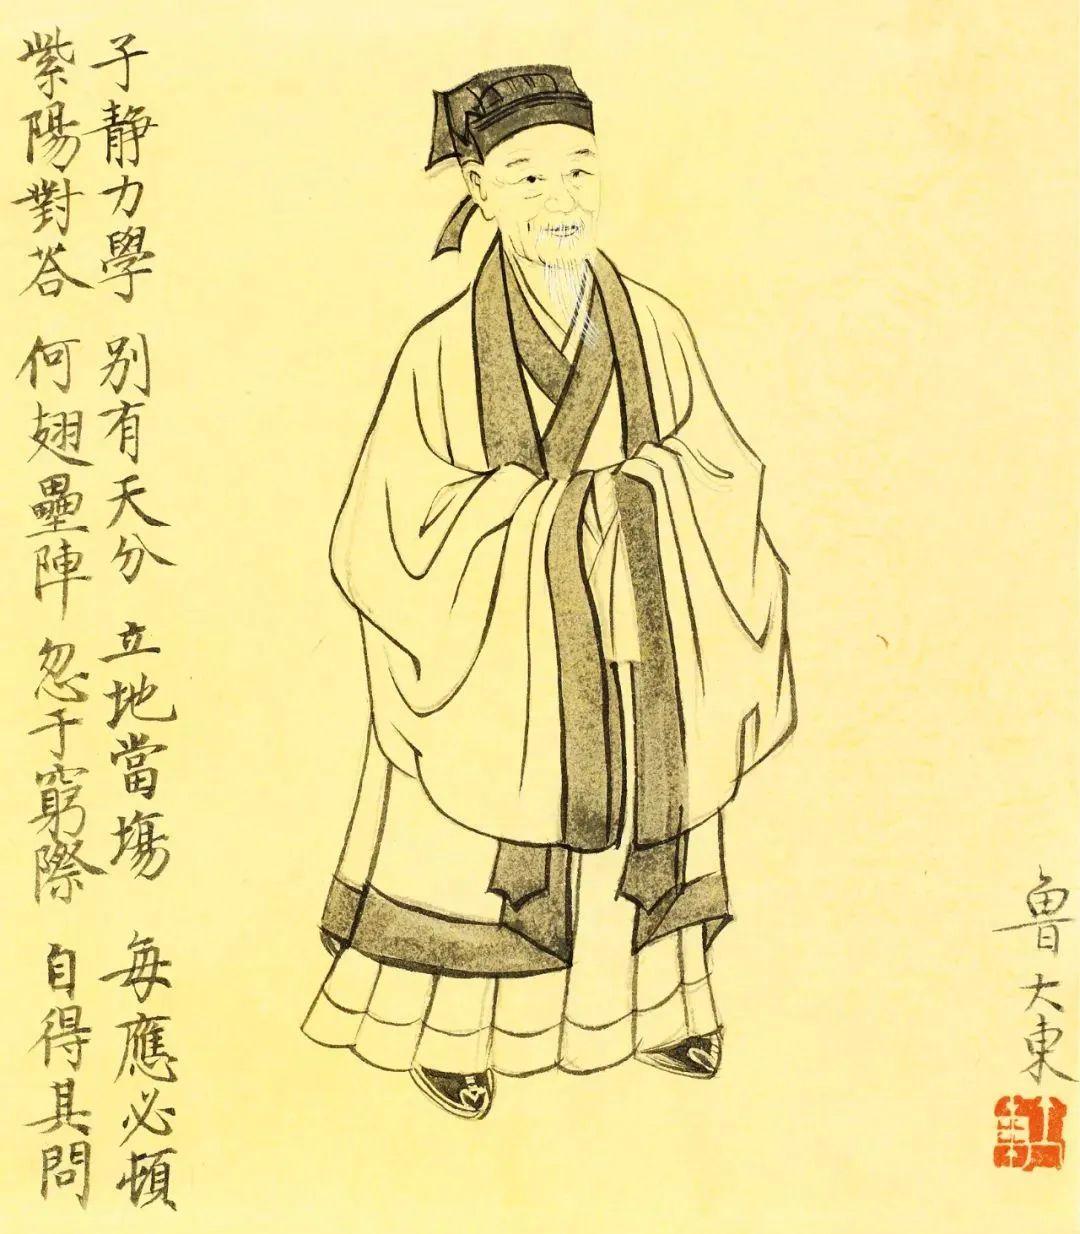 子静力學 别有天分 立地當塲 每應必頓
紫陽對荅 何翅壘陣 忽于窮際 自得其問
魯大東